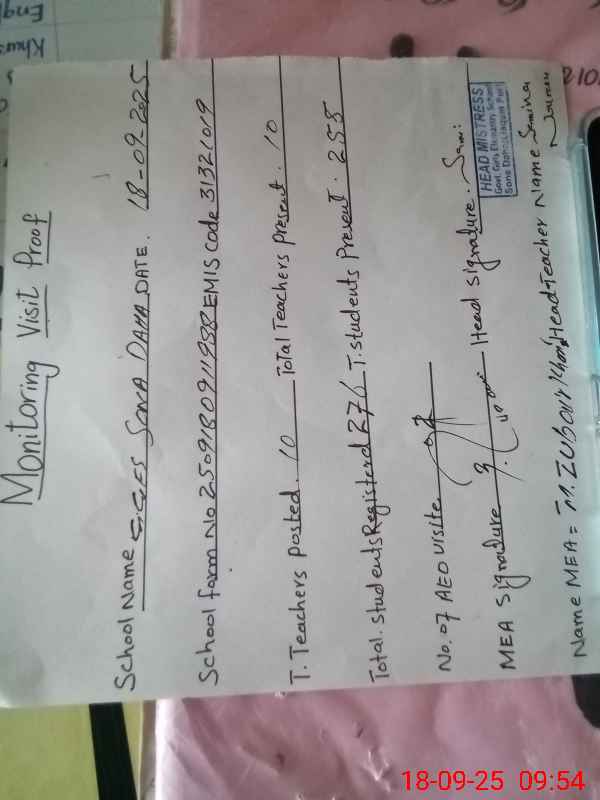 Monitoring Visit Proof
School Name GGES SONA DAHA DATE. 18-09-2025
School form No 2509180911988 EMIS Code 31321019
T. Teachers posted. 10 Total Teachers present. 10
Total. students Registered 276 T. students Present. 255
No. of AEO visits
MEA Signature Head Signature.
HEAD MISTRESS
Govt. Girls Elementary School
Name MEA = M. Zubair Khan Head Teacher Name Samina
18-09-25 09:54